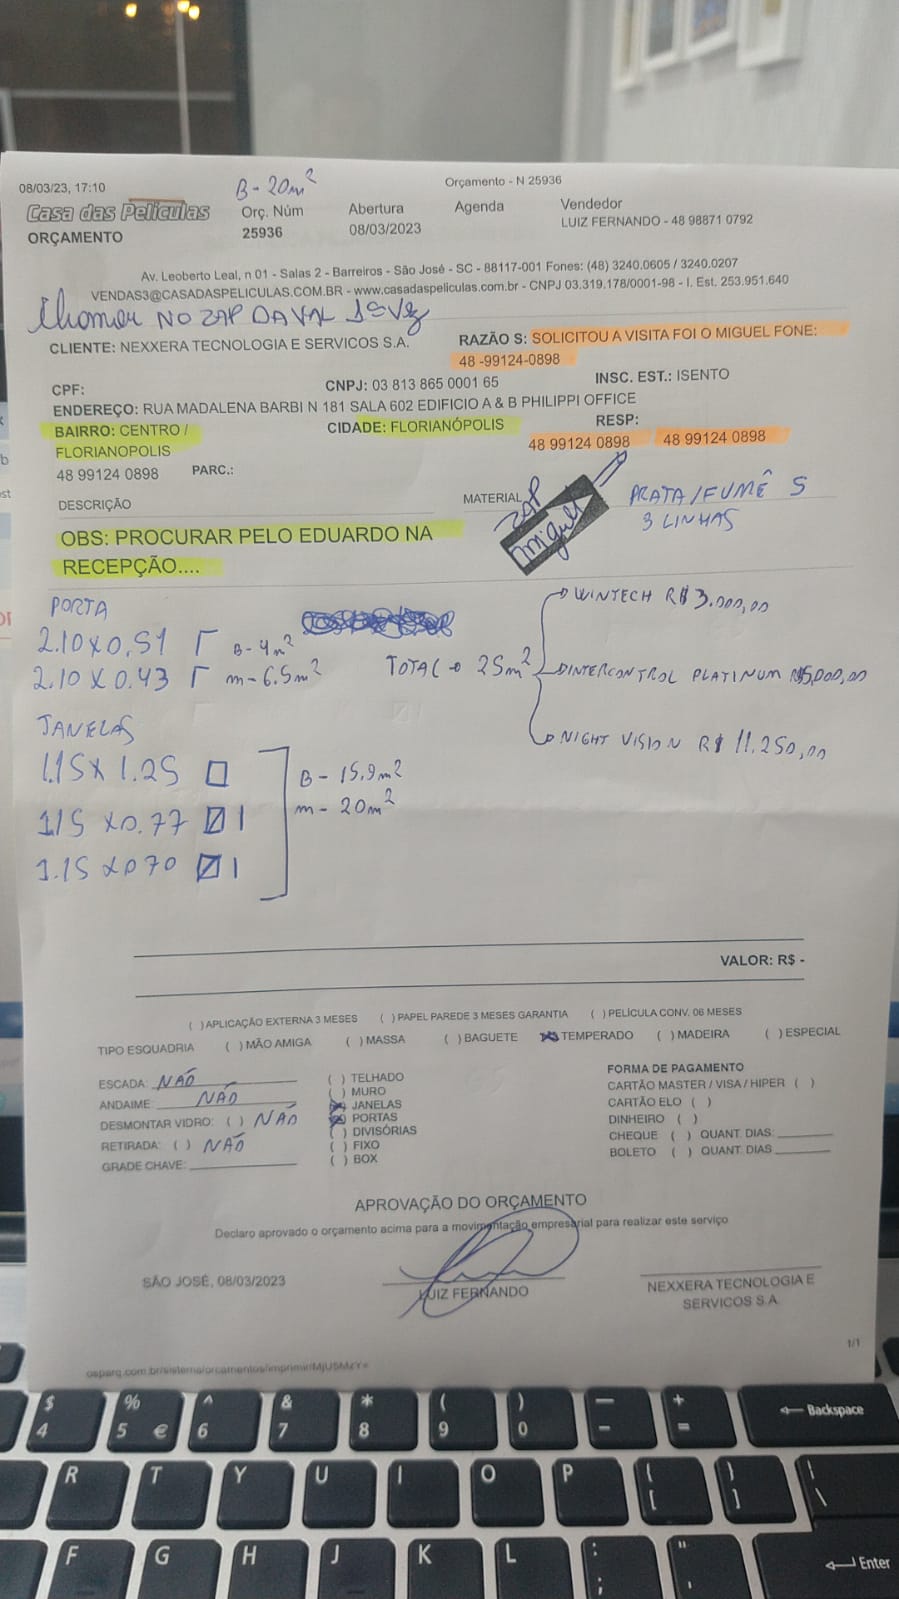 08/03/23, 17:10
B - 20m²
Orçamento - N 25936
Casa das Películas
ORÇAMENTO
Orç. Núm
25936
Abertura
08/03/2023
Agenda
Vendedor
LUIZ FERNANDO - 48 98871 0792
Av. Leoberto Leal, n 01 - Salas 2 - Barreiros - São José - SC - 88117-001 Fones: (48) 3240.0605 / 3240.0207
VENDAS3@CASADASPELICULAS.COM.BR - www.casadaspeliculas.com.br - CNPJ 03.319.178/0001-98 - I. Est. 253.951.640
NO ZAP DA VAL 1ª Vez
CLIENTE: NEXXERA TECNOLOGIA E SERVICOS S.A.
RAZÃO S: SOLICITOU A VISITA FOI O MIGUEL FONE:
48 -99124-0898
CPF:
CNPJ: 03 813 865 0001 65
INSC. EST.: ISENTO
ENDEREÇO: RUA MADALENA BARBI N 181 SALA 602 EDIFICIO A & B PHILIPPI OFFICE
BAIRRO: CENTRO /
FLORIANOPOLIS
CIDADE: FLORIANÓPOLIS
RESP:
48 99124 0898
48 99124 0898
48 99124 0898
PARC.:
DESCRIÇÃO
MATERIAL
ZAP
Miguel
PRATA/FUMÊ S
3 LINHAS
OBS: PROCURAR PELO EDUARDO NA
RECEPÇÃO....
PORTA
2.10 X 0,51 B - 4m²
2.10 X 0.43 m - 6.5m²
TOTAL 25m²
WINTECH R$ 3.000,00
INTERCONTROL PLATINUM R$5,000,00
NIGHT VISION R$ 11.250,00
JANELAS
1.15 X 1.25
1.15 X 0.77 1
1.15 X 0 70 1
B - 15.9m²
m - 20m²
VALOR: R$ -
( )APLICAÇÃO EXTERNA 3 MESES ( )PAPEL PAREDE 3 MESES GARANTIA ( )PELÍCULA CONV. 06 MESES
TIPO ESQUADRIA ( )MÃO AMIGA ( )MASSA ( )BAGUETE (X)TEMPERADO ( )MADEIRA ( )ESPECIAL
ESCADA: NÃO
ANDAIME: NÃO
DESMONTAR VIDRO: ( ) NÃO
RETIRADA: ( ) NÃO
GRADE CHAVE:
( ) TELHADO
( ) MURO
(X) JANELAS
(X) PORTAS
( ) DIVISÓRIAS
( ) FIXO
( ) BOX
FORMA DE PAGAMENTO
CARTÃO MASTER / VISA / HIPER ( )
CARTÃO ELO ( )
DINHEIRO ( )
CHEQUE ( ) QUANT. DIAS:
BOLETO ( ) QUANT. DIAS
APROVAÇÃO DO ORÇAMENTO
Declaro aprovado o orçamento acima para a movimentação empresarial para realizar este serviço
SÃO JOSÉ, 08/03/2023
LUIZ FERNANDO
NEXXERA TECNOLOGIA E
SERVICOS S.A.
1/1
$ % ^ & * ( ) — + Backspace
4 5 € 6 7 8 9 0 - =
R T Y U I O P { } |
[ ] \
F G H J K L : " Enter
; '